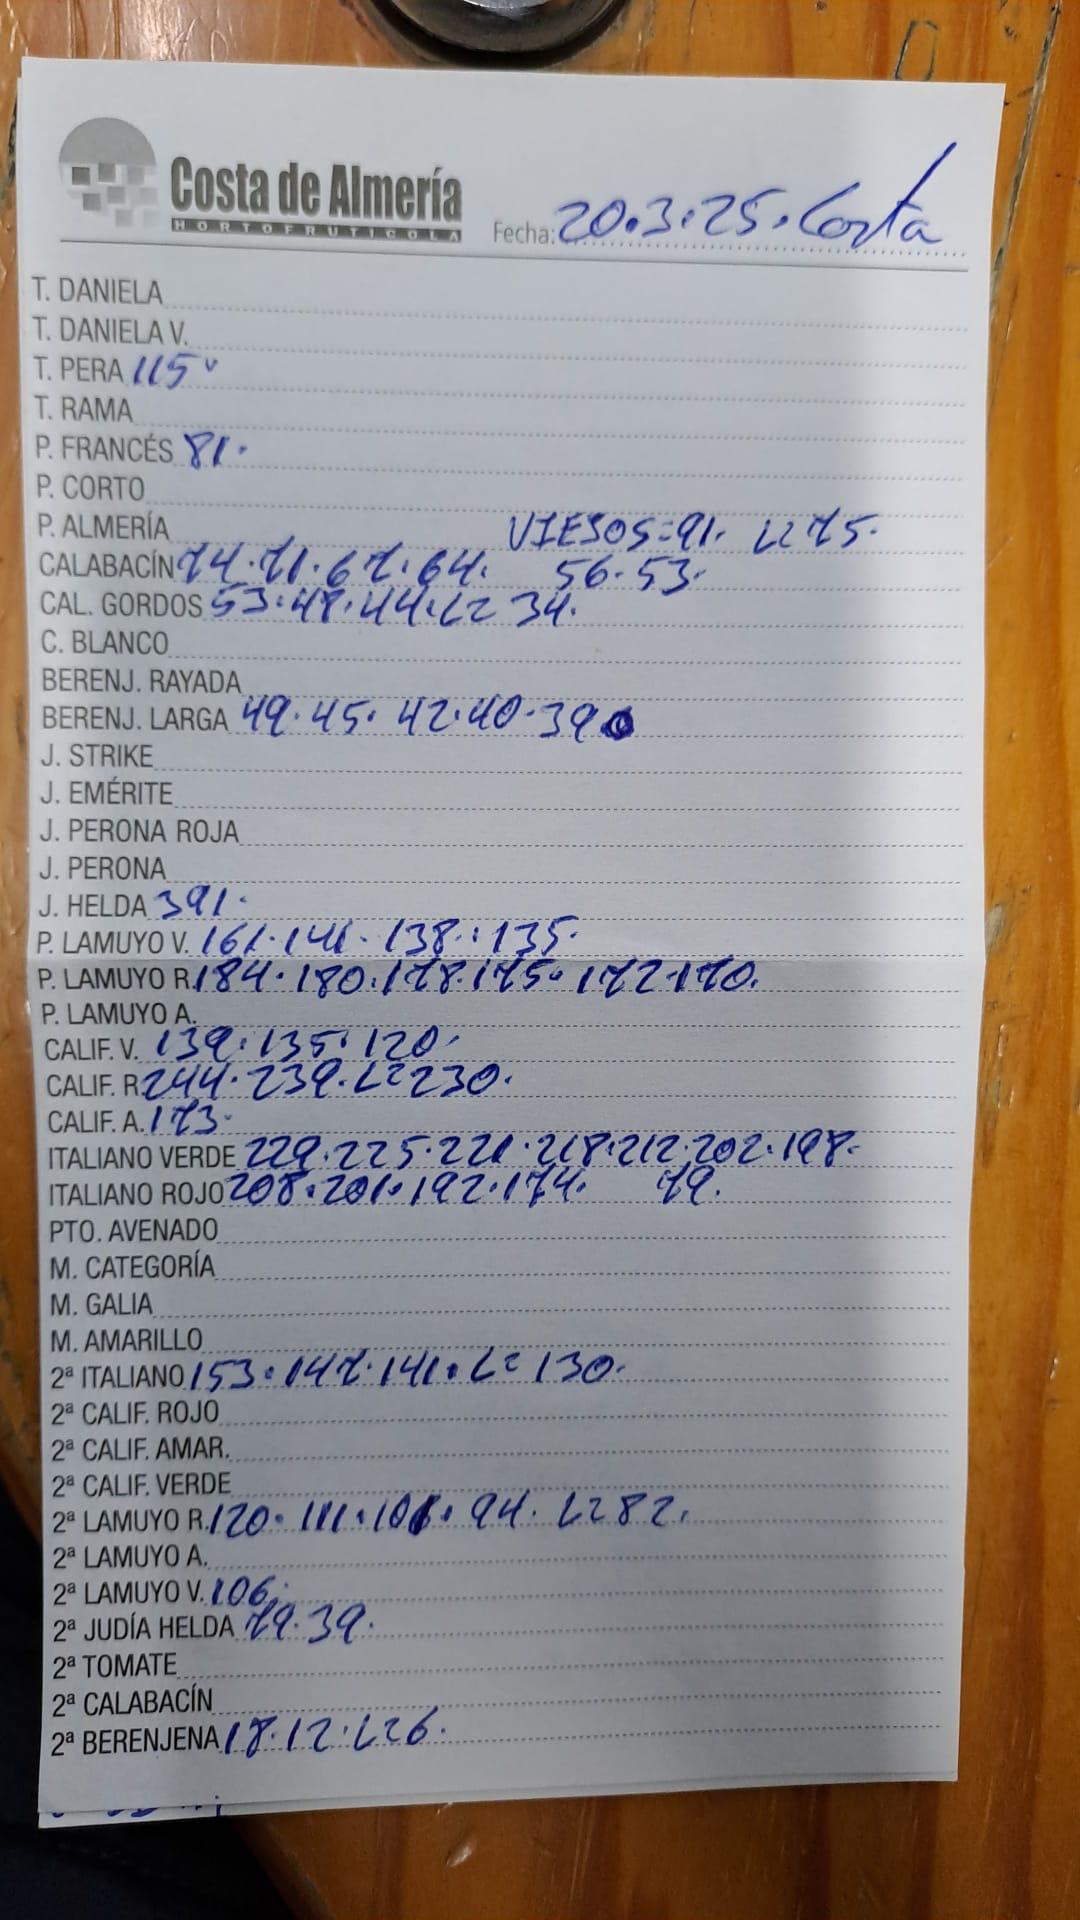 Costa de Almería
HORTOFRUTICOLA
Fecha: 20.3.25. Costa
T. DANIELA
T. DANIELA V.
T. PERA 115
T. RAMA
P. FRANCÉS 81.
P. CORTO
P. ALMERÍA VIESOS=91. L= 75.
CALABACÍN 74.71.67.64. 56.53.
CAL. GORDOS 53.48.44.L= 34.
C. BLANCO
BERENJ. RAYADA
BERENJ. LARGA 49.45. 42.40.39
J. STRIKE
J. EMÉRITE
J. PERONA ROJA
J. PERONA
J. HELDA 391.
P. LAMUYO V. 161.141. 138.:135.
P. LAMUYO R. 184.180.178.175.172.170.
P. LAMUYO A.
CALIF. V. 139.135.120.
CALIF. R 244.239.L=230.
CALIF. A. 173.
ITALIANO VERDE 229.225.221.218.212.202.198.
ITALIANO ROJO 208.201.192.174. 79.
PTO. AVENADO
M. CATEGORÍA
M. GALIA
M. AMARILLO
2ª ITALIANO 153.147.141.L= 130.
2ª CALIF. ROJO
2ª CALIF. AMAR.
2ª CALIF. VERDE
2ª LAMUYO R. 120.111. 94. L=82.
2ª LAMUYO A.
2ª LAMUYO V. 106.
2ª JUDÍA HELDA 79.39.
2ª TOMATE
2ª CALABACÍN
2ª BERENJENA 18.12.L=6.